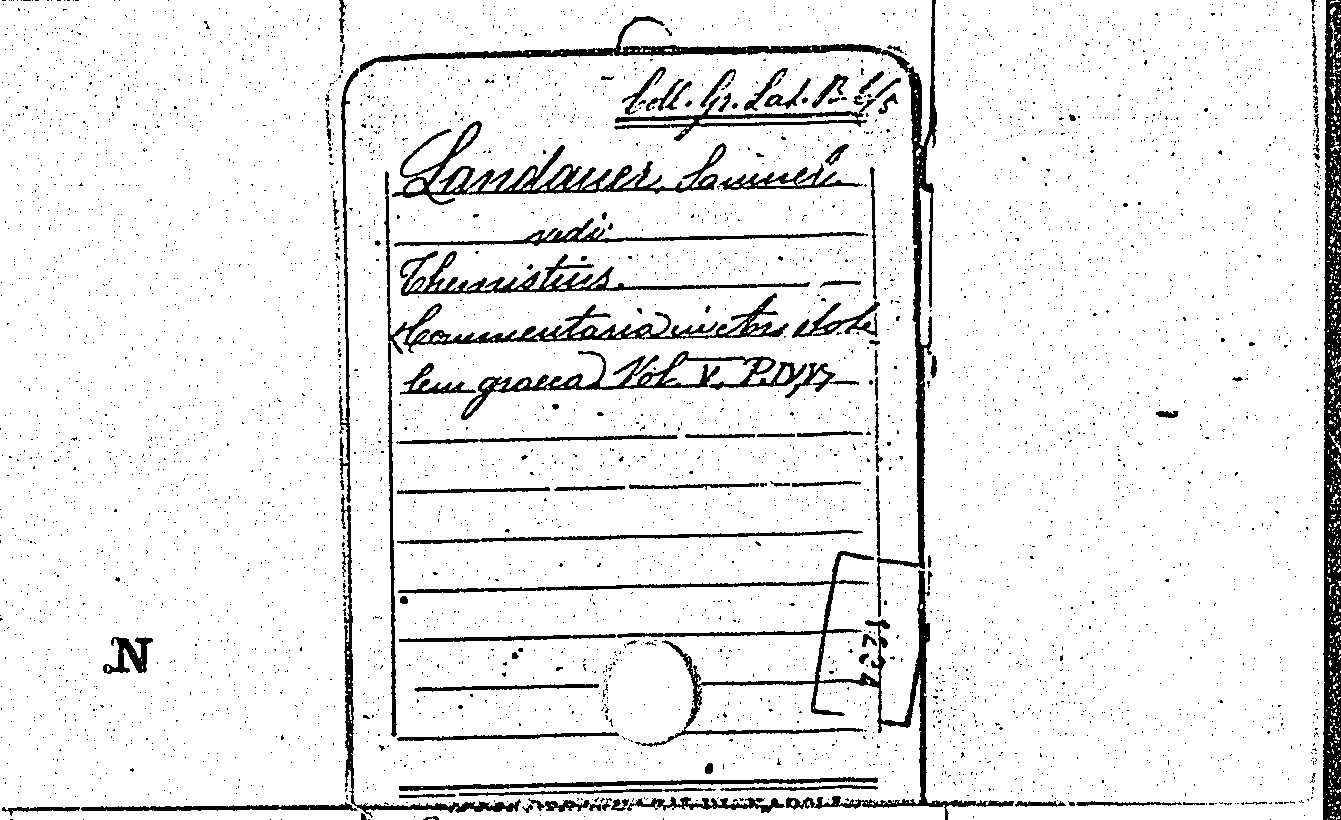 Coll. Gr. Lat. B 6/5
Landauer, Samuel.
vide:
Themistius.
(Commentaria in Aristote
lem graeca) Vol. V. P. IV,V,
N